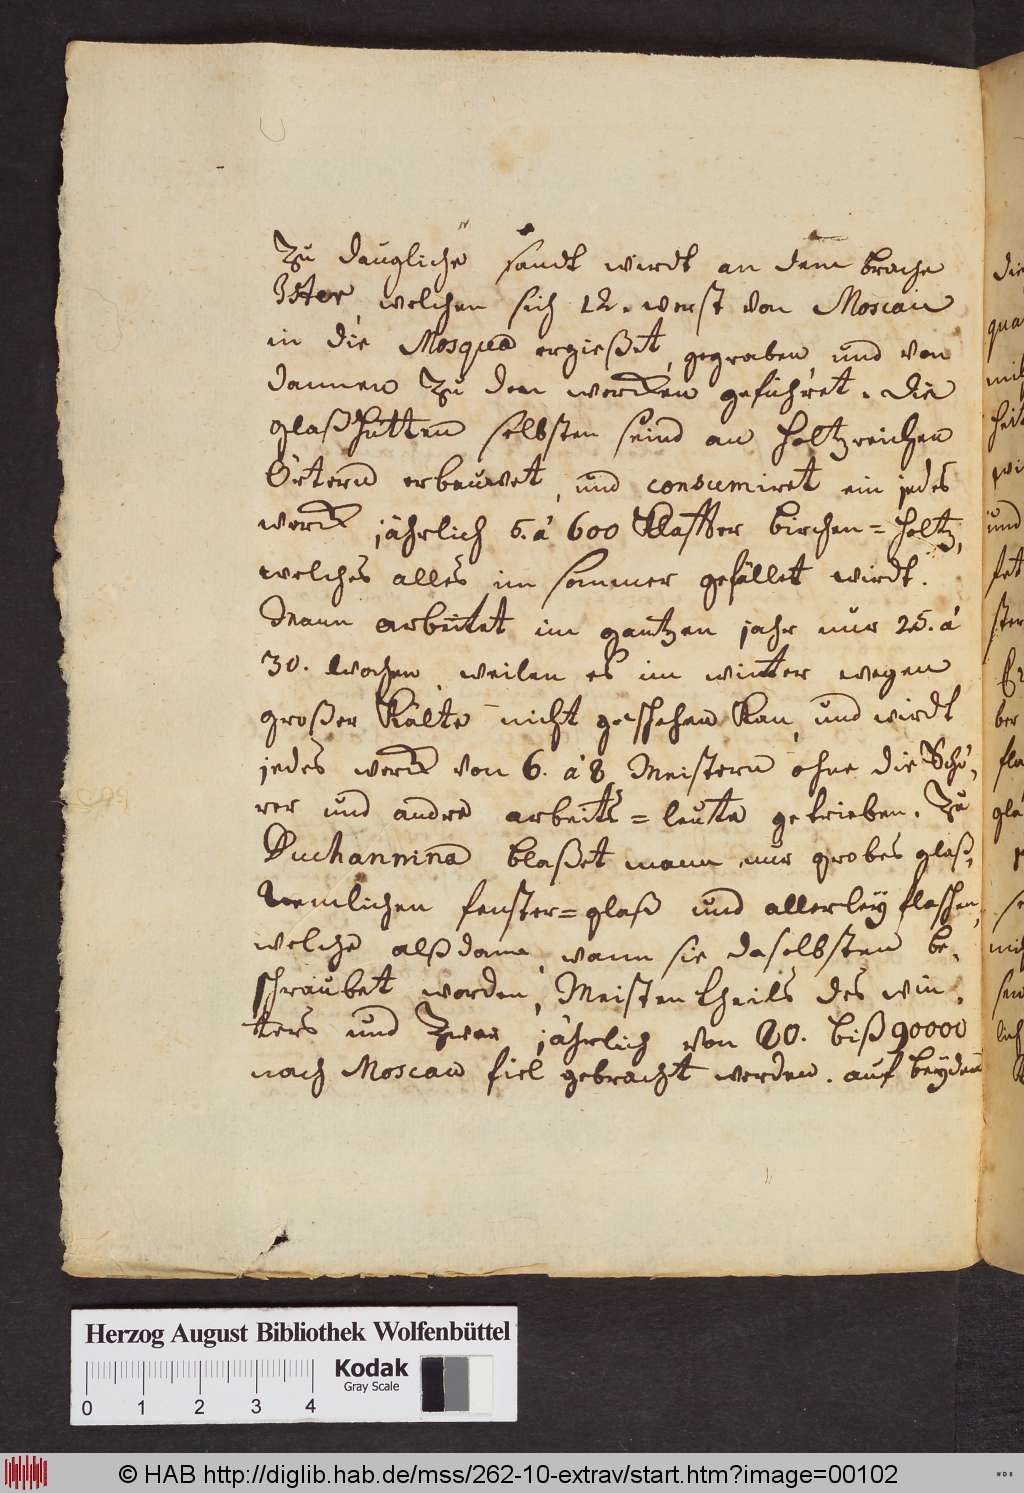 Zu daugliche sandt wirdt an dem brache
Ister, welchen sich 12. werst von Moscau
in die Mosqua ergießet, gegraben und von
dannen zu den wercken geführet. Die
glaßhütten selbsten seind an holtzreichen
Örtern erbauwet, und consumiret ein jedes
werck jährlich 5. á 600 Klaffter birchen=holtz,
welches alles im sommer gefället wirdt.
Mann arbeitet im gantzen jahr nur 25. á
30. wochen, weilen es im winter wegen
großer Kälte nicht geschehen kan, und wirdt
jedes werck von 6. á 8 Meistern ohne die Schü-
rer und andre arbeits=leute getrieben. Zu
Duchannina blaßet mann nur grobes glaß,
Nemlichen fenster=glaß und allerley flaschen,
welche alßdann, wann sie daselbsten be-
schraubet worden, Meistentheils des win-
ters und zwar jährlich von 80. biß 90000
nach Moscau fiel gebracht werden. auf beyden
die
mit
und
ber
Herzog August Bibliothek Wolfenbüttel
Kodak
Gray Scale
0 1 2 3 4
© HAB http://diglib.hab.de/mss/262-10-extrav/start.htm?image=00102